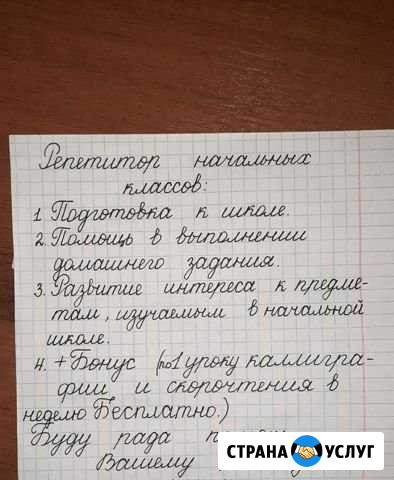 Репетитор начальных
классов:
1 Подготовка к школе.
2. Помощь в выполнении
домашнего задания.
3. Развитие интереса к предме-
там, изучаемым в начальной
школе.
4. + Бонус (по 1 уроку каллигра-
фии и скорочтения в
неделю Бесплатно.)
Буду рада
Вашему
СТРАНА УСЛУГ